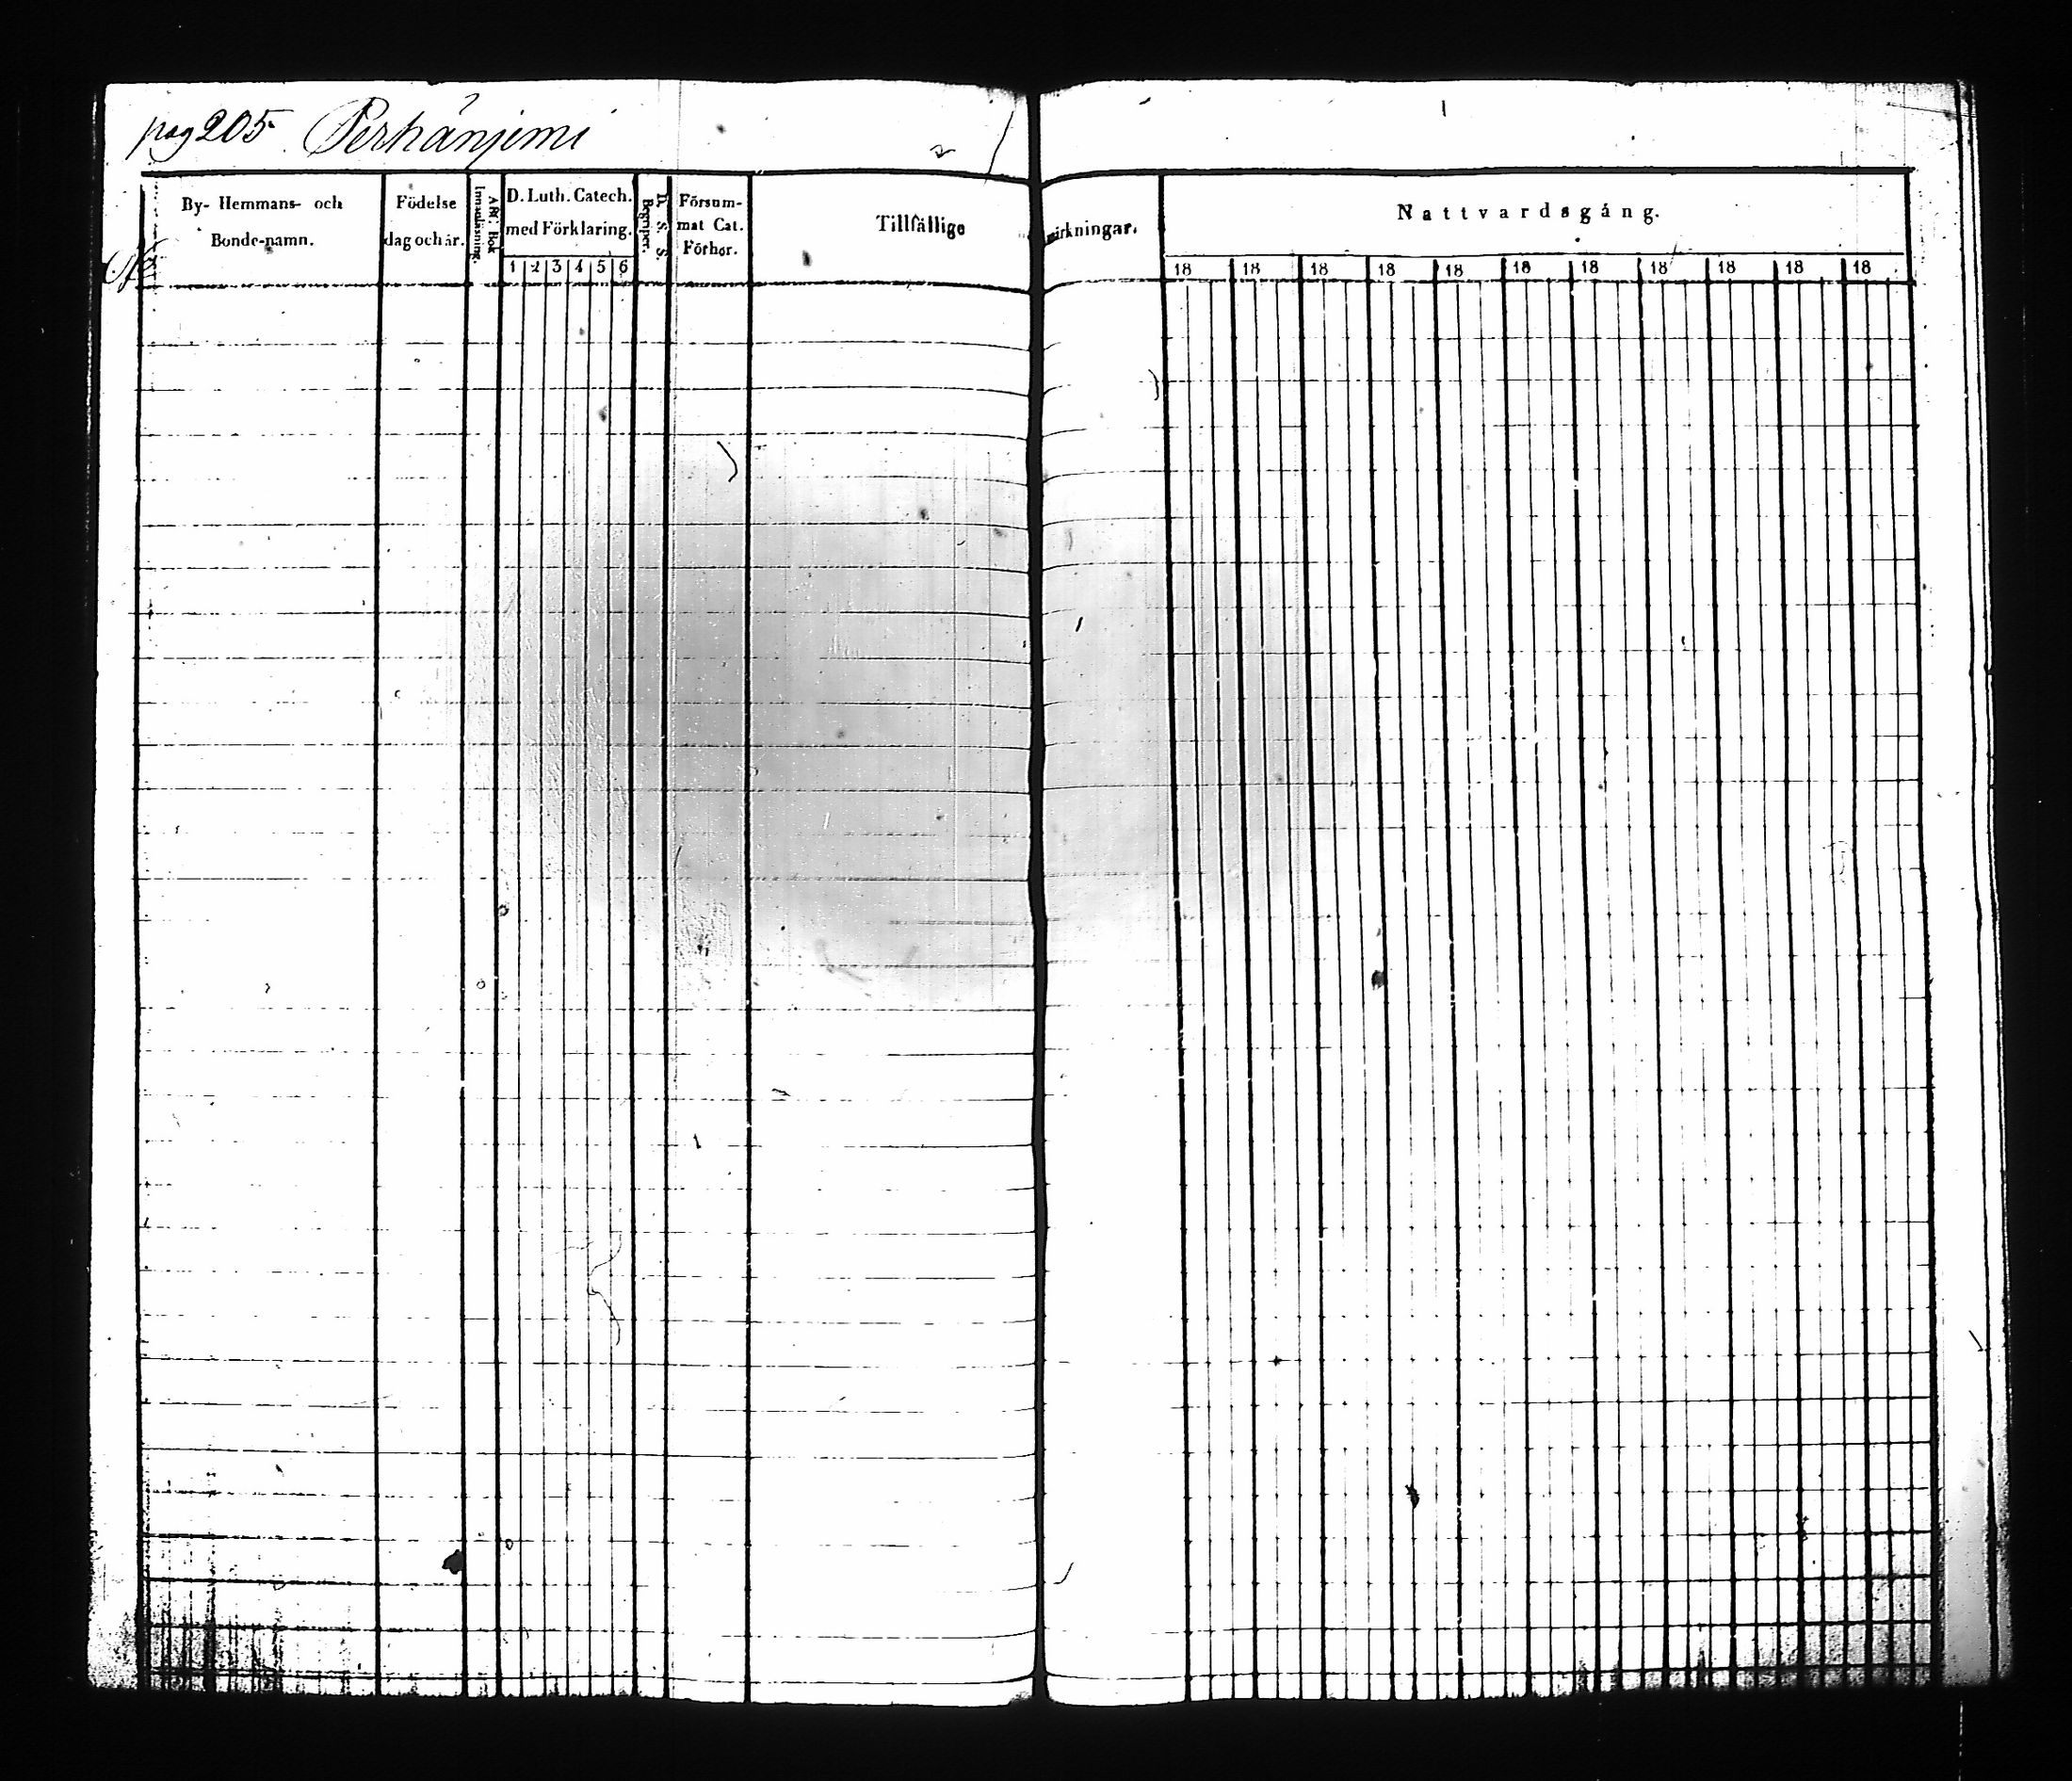 pag 205. Perhänjemi
By- Hemmans- och
Bonde-namn.
Födelse
dag och år.
A B C Bok
Innanläsning.
D. Luth. Catech.
med Förklaring.
1 2 3 4 5 6
D. S. S.
Begriper.
Försum-
mat Cat.
Förhör.
Tillfällige
märkningar.
Nattvardsgång.
18 18 18 18 18 18 18 18 18 18 18